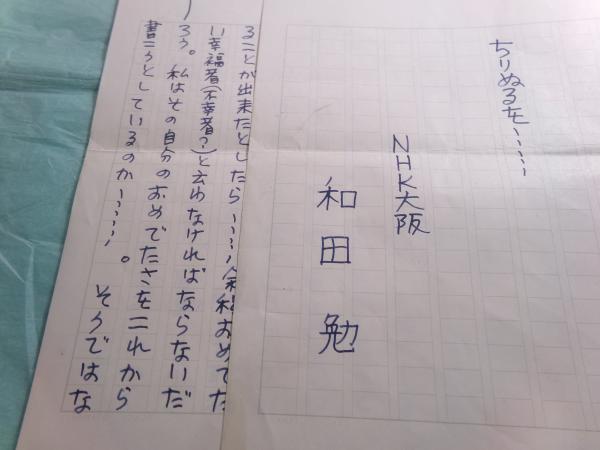 ちりぬるを……
NHK大阪
和田 勉
ることが出来たとしたら……おめでた
い幸福者(不幸者?)と云わなければならないだ
ろう。私はその自分のおめでたさをこれから
書こうとしているのか……。そうではな